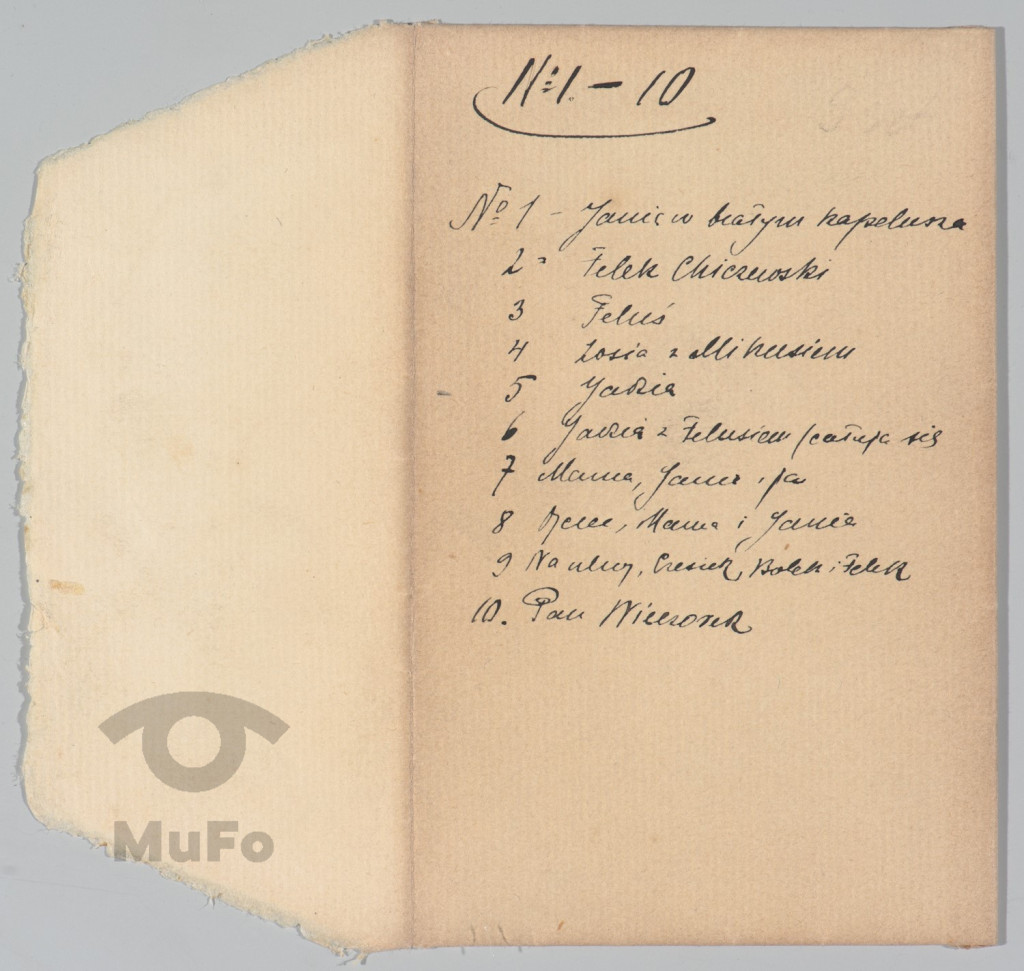 Nº 1. – 10
Nº 1 – Jania w białym kapeluszu
2 " Felek Chiczewski
3 Feluś
4 Zosia z Mikusiem
5 Jadzia
6 Jadzia z Felusiem (całują się
7 Mama, Jania i ja
8 Mama i Jania
9 Na ulicy, Czesiek, Bolek i Felek
10. Pan Wieczorek
MuFo